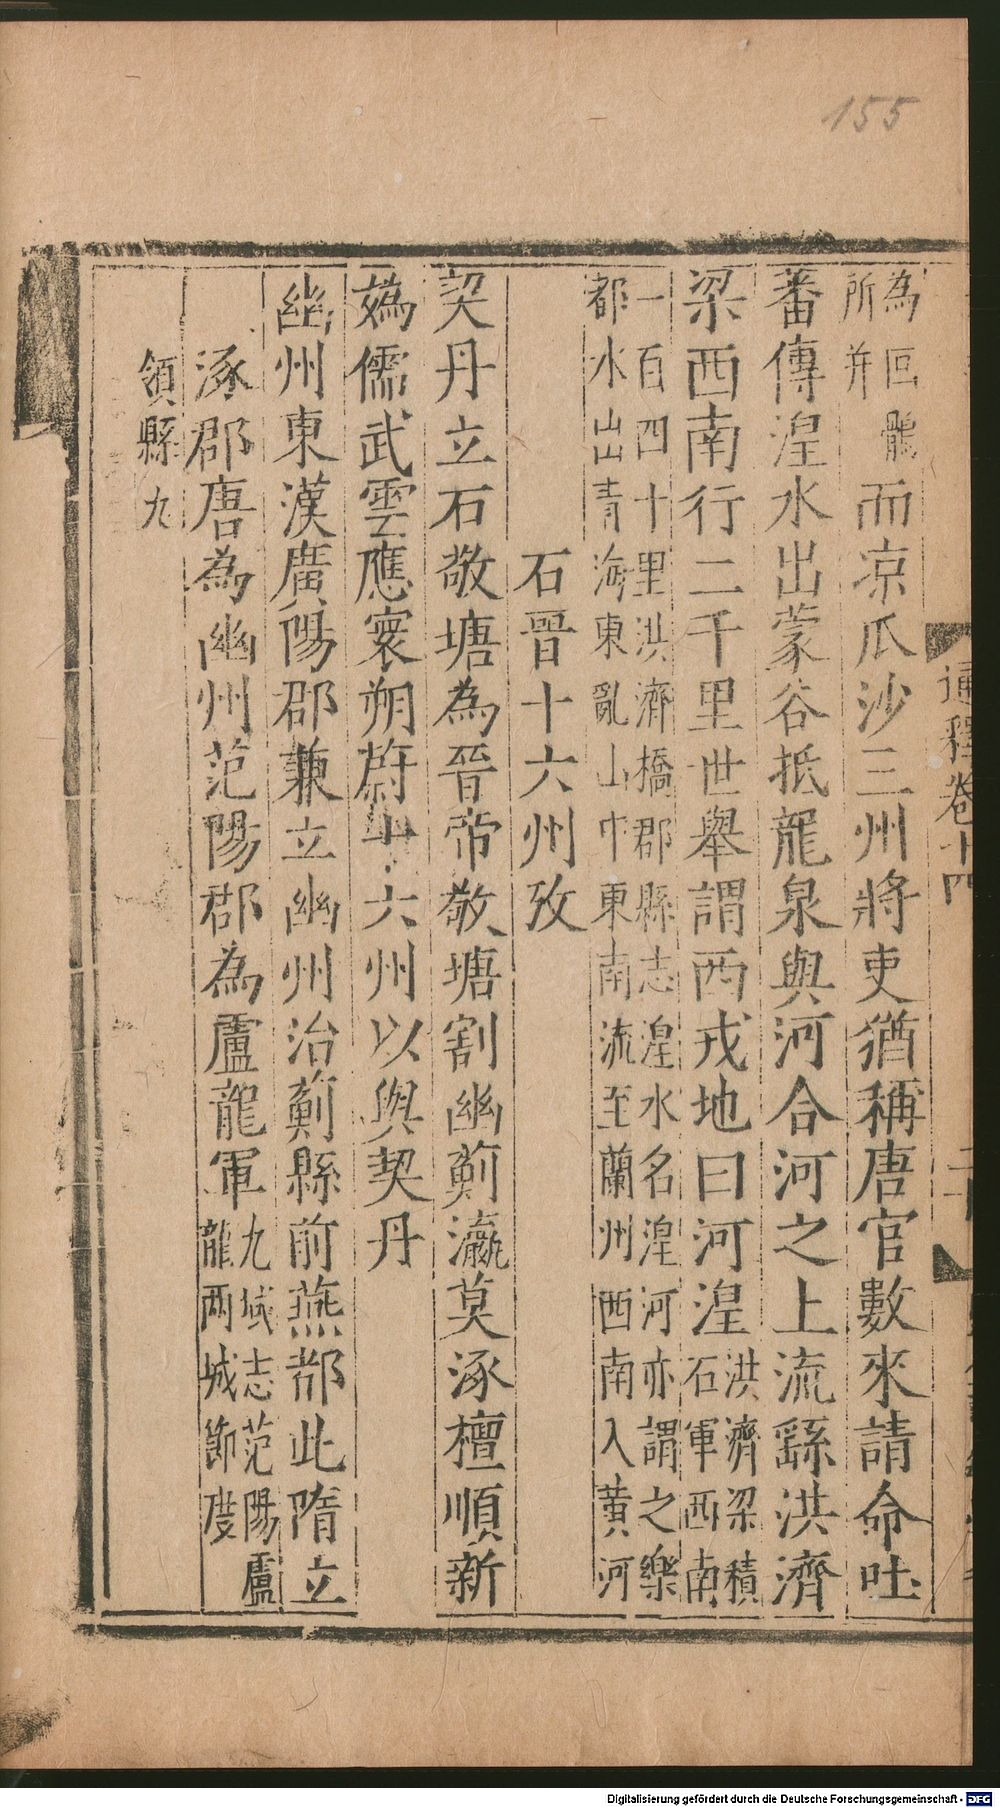 155
通釋卷十四
為回鶻
所并
而凉瓜沙三州將吏猶稱唐官數來請命吐
蕃傳湟水出蒙谷抵龍泉與河合河之上流繇洪濟
梁西南行二千里世舉謂西戎地曰河湟
洪濟梁積
石軍西南
一百四十里洪濟橋郡縣志湟水名湟河亦謂之樂
都水出青海東亂山中東南流至蘭州西南入黄河
石晉十六州攷
契丹立石敬塘為晉帝敬塘割幽薊瀛莫涿檀順新
媯儒武雲應寰朔蔚十六州以與契丹
幽州東漢廣陽郡兼立幽州治薊縣前燕都此隋立
涿郡唐為幽州范陽郡為盧龍軍
九域志范陽盧
龍两城節度
領縣九
Digitalisierung gefördert durch die Deutsche Forschungsgemeinschaft - DFG